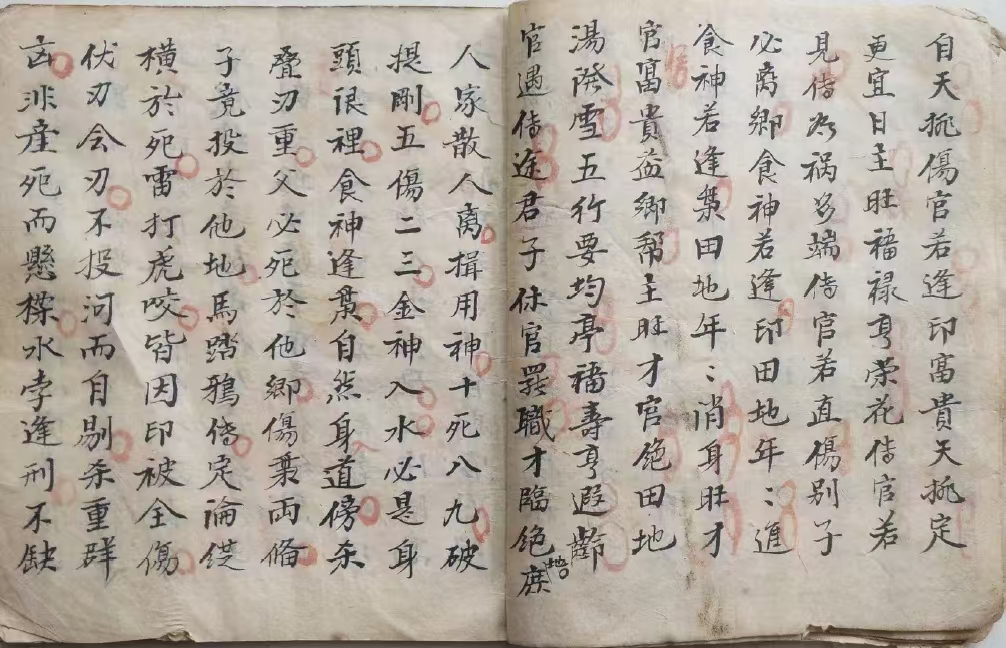 自天挑傷官若逢印富貴天挑定
更宜日主旺福禄亨荣花傷官若
見傷災祸多端傷官若直傷别子
必离鄉食神若逢印田地年〻進
食神若逢梟田地年〻消身旺才
官富貴益鄉帮主旺才官绝田地
湯潑雪五行要均亭福壽亨遐齡
官遇傷途君子休官罷職才臨绝地庶
人家散人离揖用神十死八九破
提剛五傷二三金神入水必是身
頭很裡食神逢梟自然身道傍杀
叠刃重父必死於他鄉傷梟両俻
子竟投於他地馬踏鴉傷定論従
横於死雷打虎咬皆因印被全傷
伏刃会刃不投河而自剔杀重群
凶非産死而懸樑水孛逢刑不缺